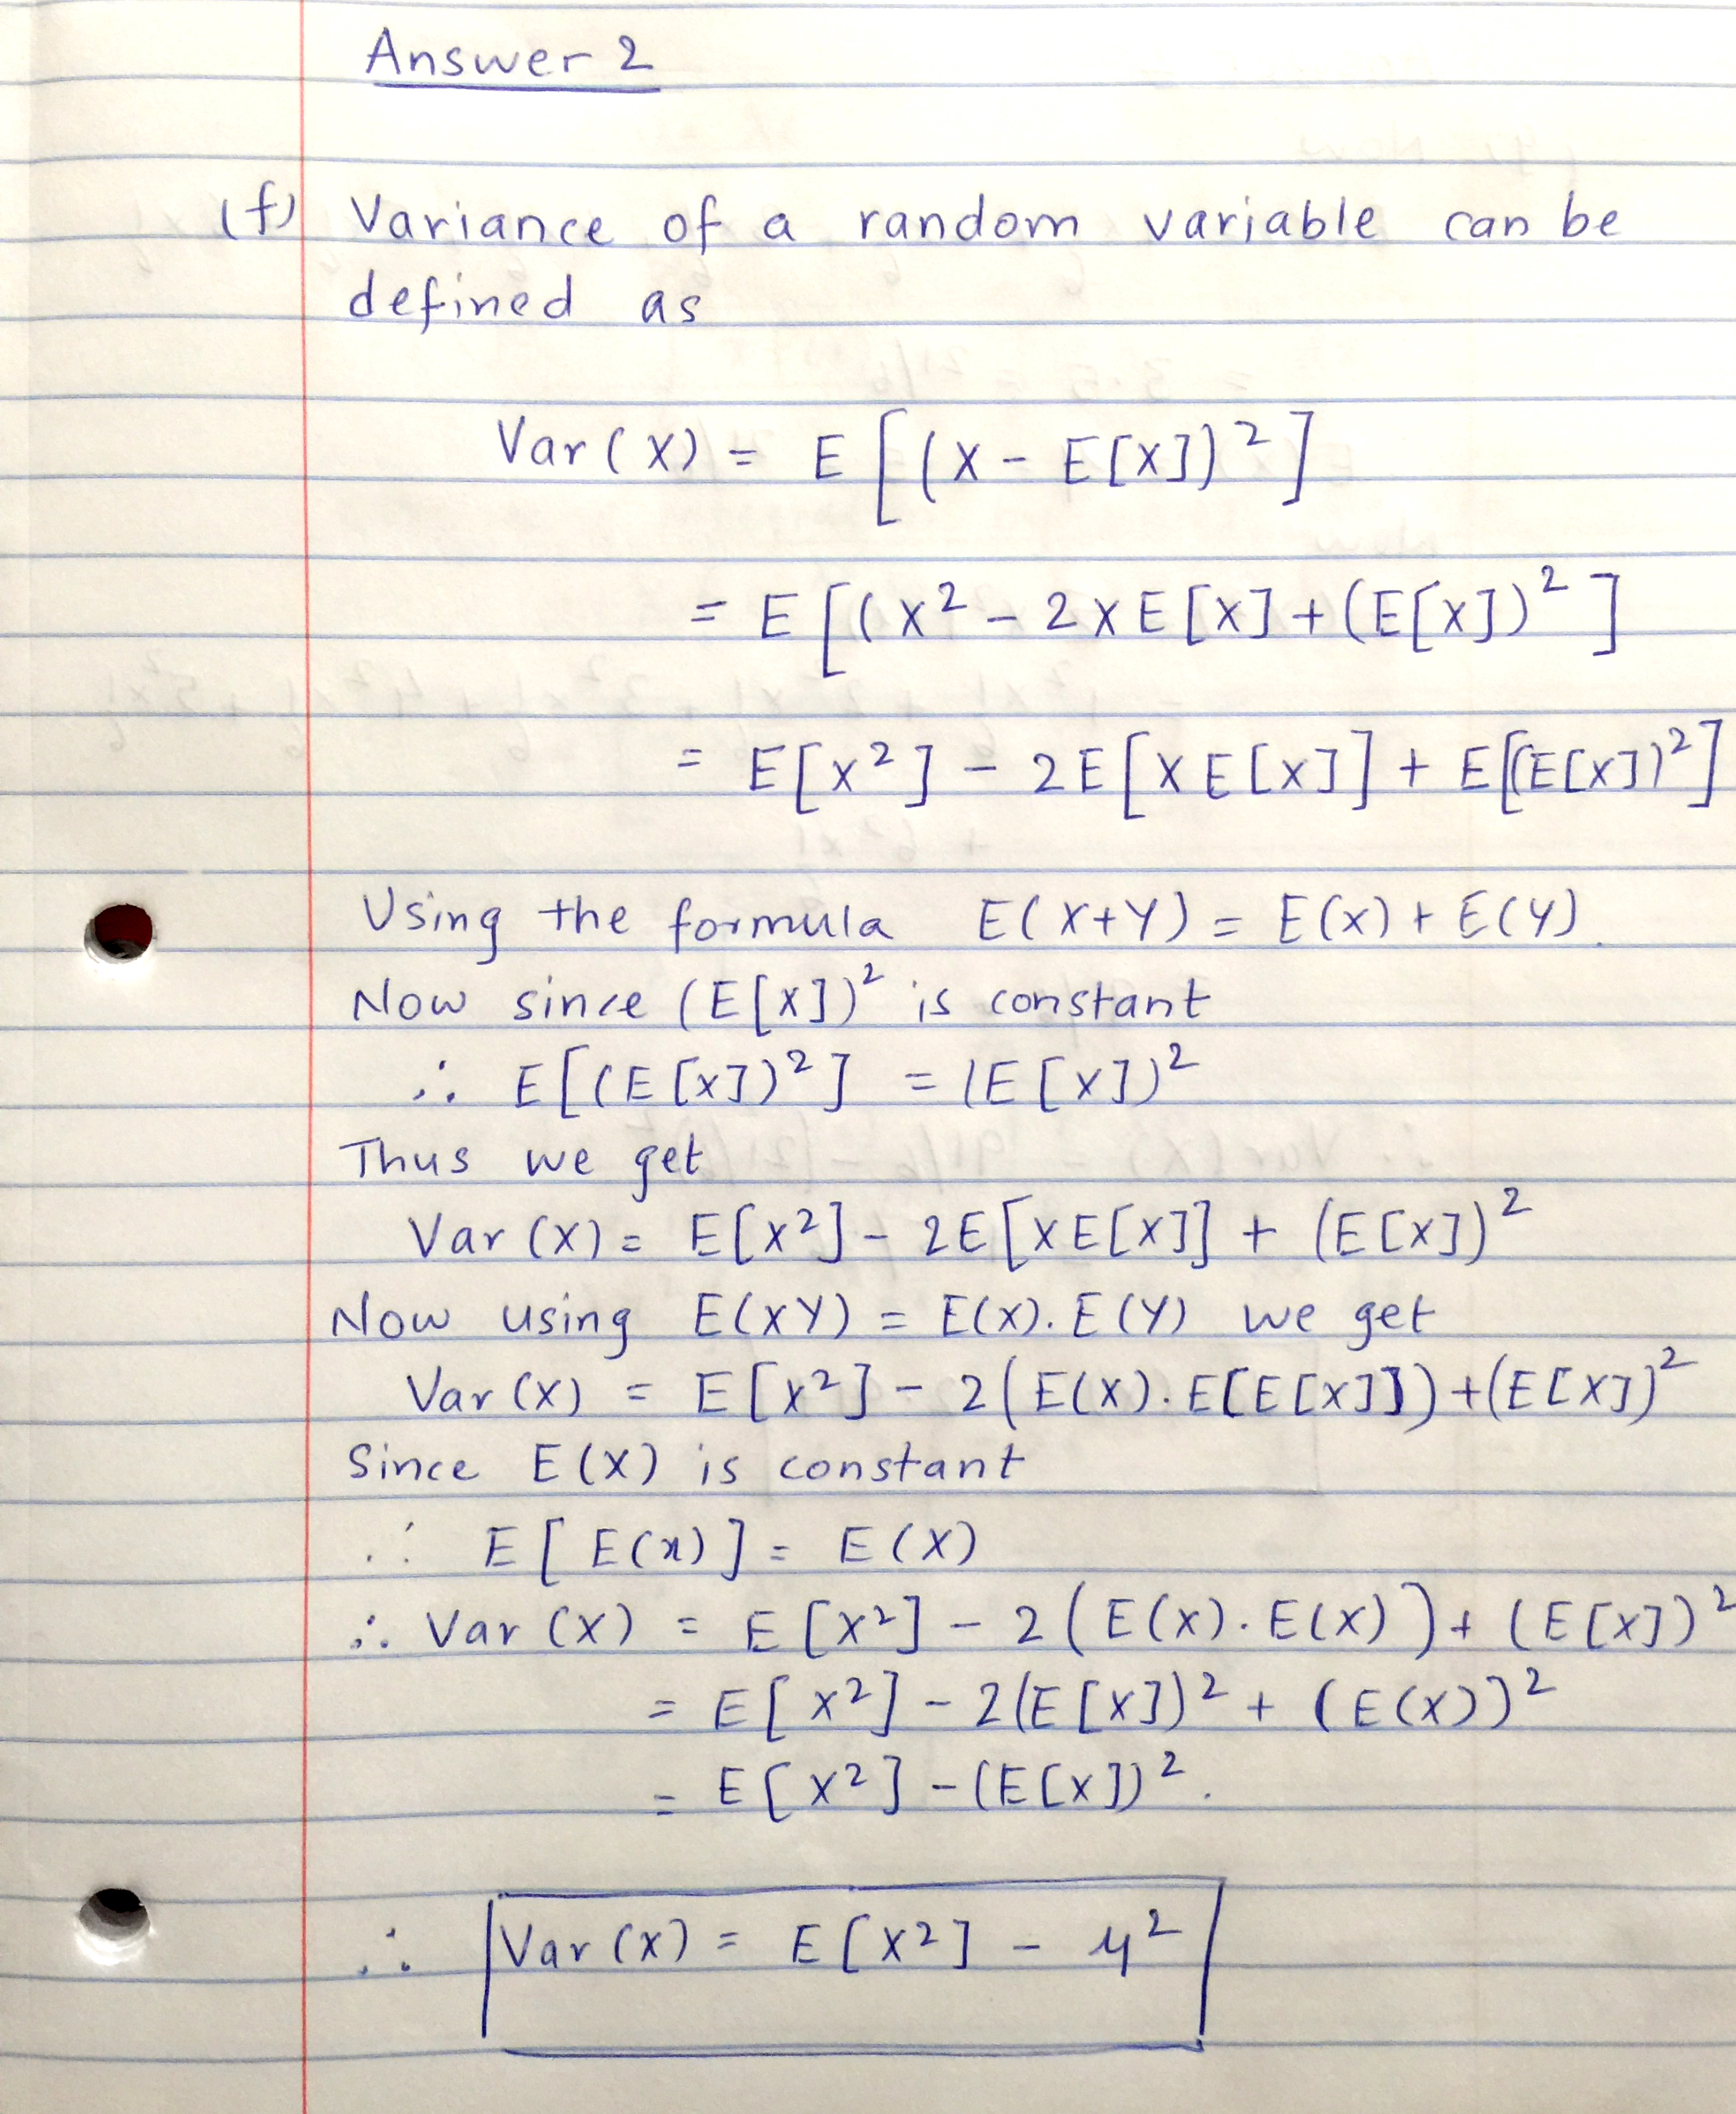 Answer 2
(f) Variance of a random variable can be
defined as
Var(X) = E[(X - E[X])²]
= E[(X² - 2XE[X] + (E[X])²]
= E[X²] - 2E[XE[X]] + E[(E[X])²]
Using the formula E(X+Y) = E(X) + E(Y).
Now since (E[X])² is constant
∴ E[(E[X])²] = (E[X])²
Thus we get
Var(X) = E[X²] - 2E[XE[X]] + (E[X])²
Now using E(XY) = E(X).E(Y) we get
Var(X) = E[X²] - 2(E(X).E[E[X]]) + (E[X])²
Since E(X) is constant
∴ E[E(x)] = E(X)
∴ Var(X) = E[X²] - 2(E(X).E(X)) + (E[X])²
= E[X²] - 2(E[X])² + (E(X))²
= E[X²] - (E[X])².
∴ Var(X) = E[X²] - μ²